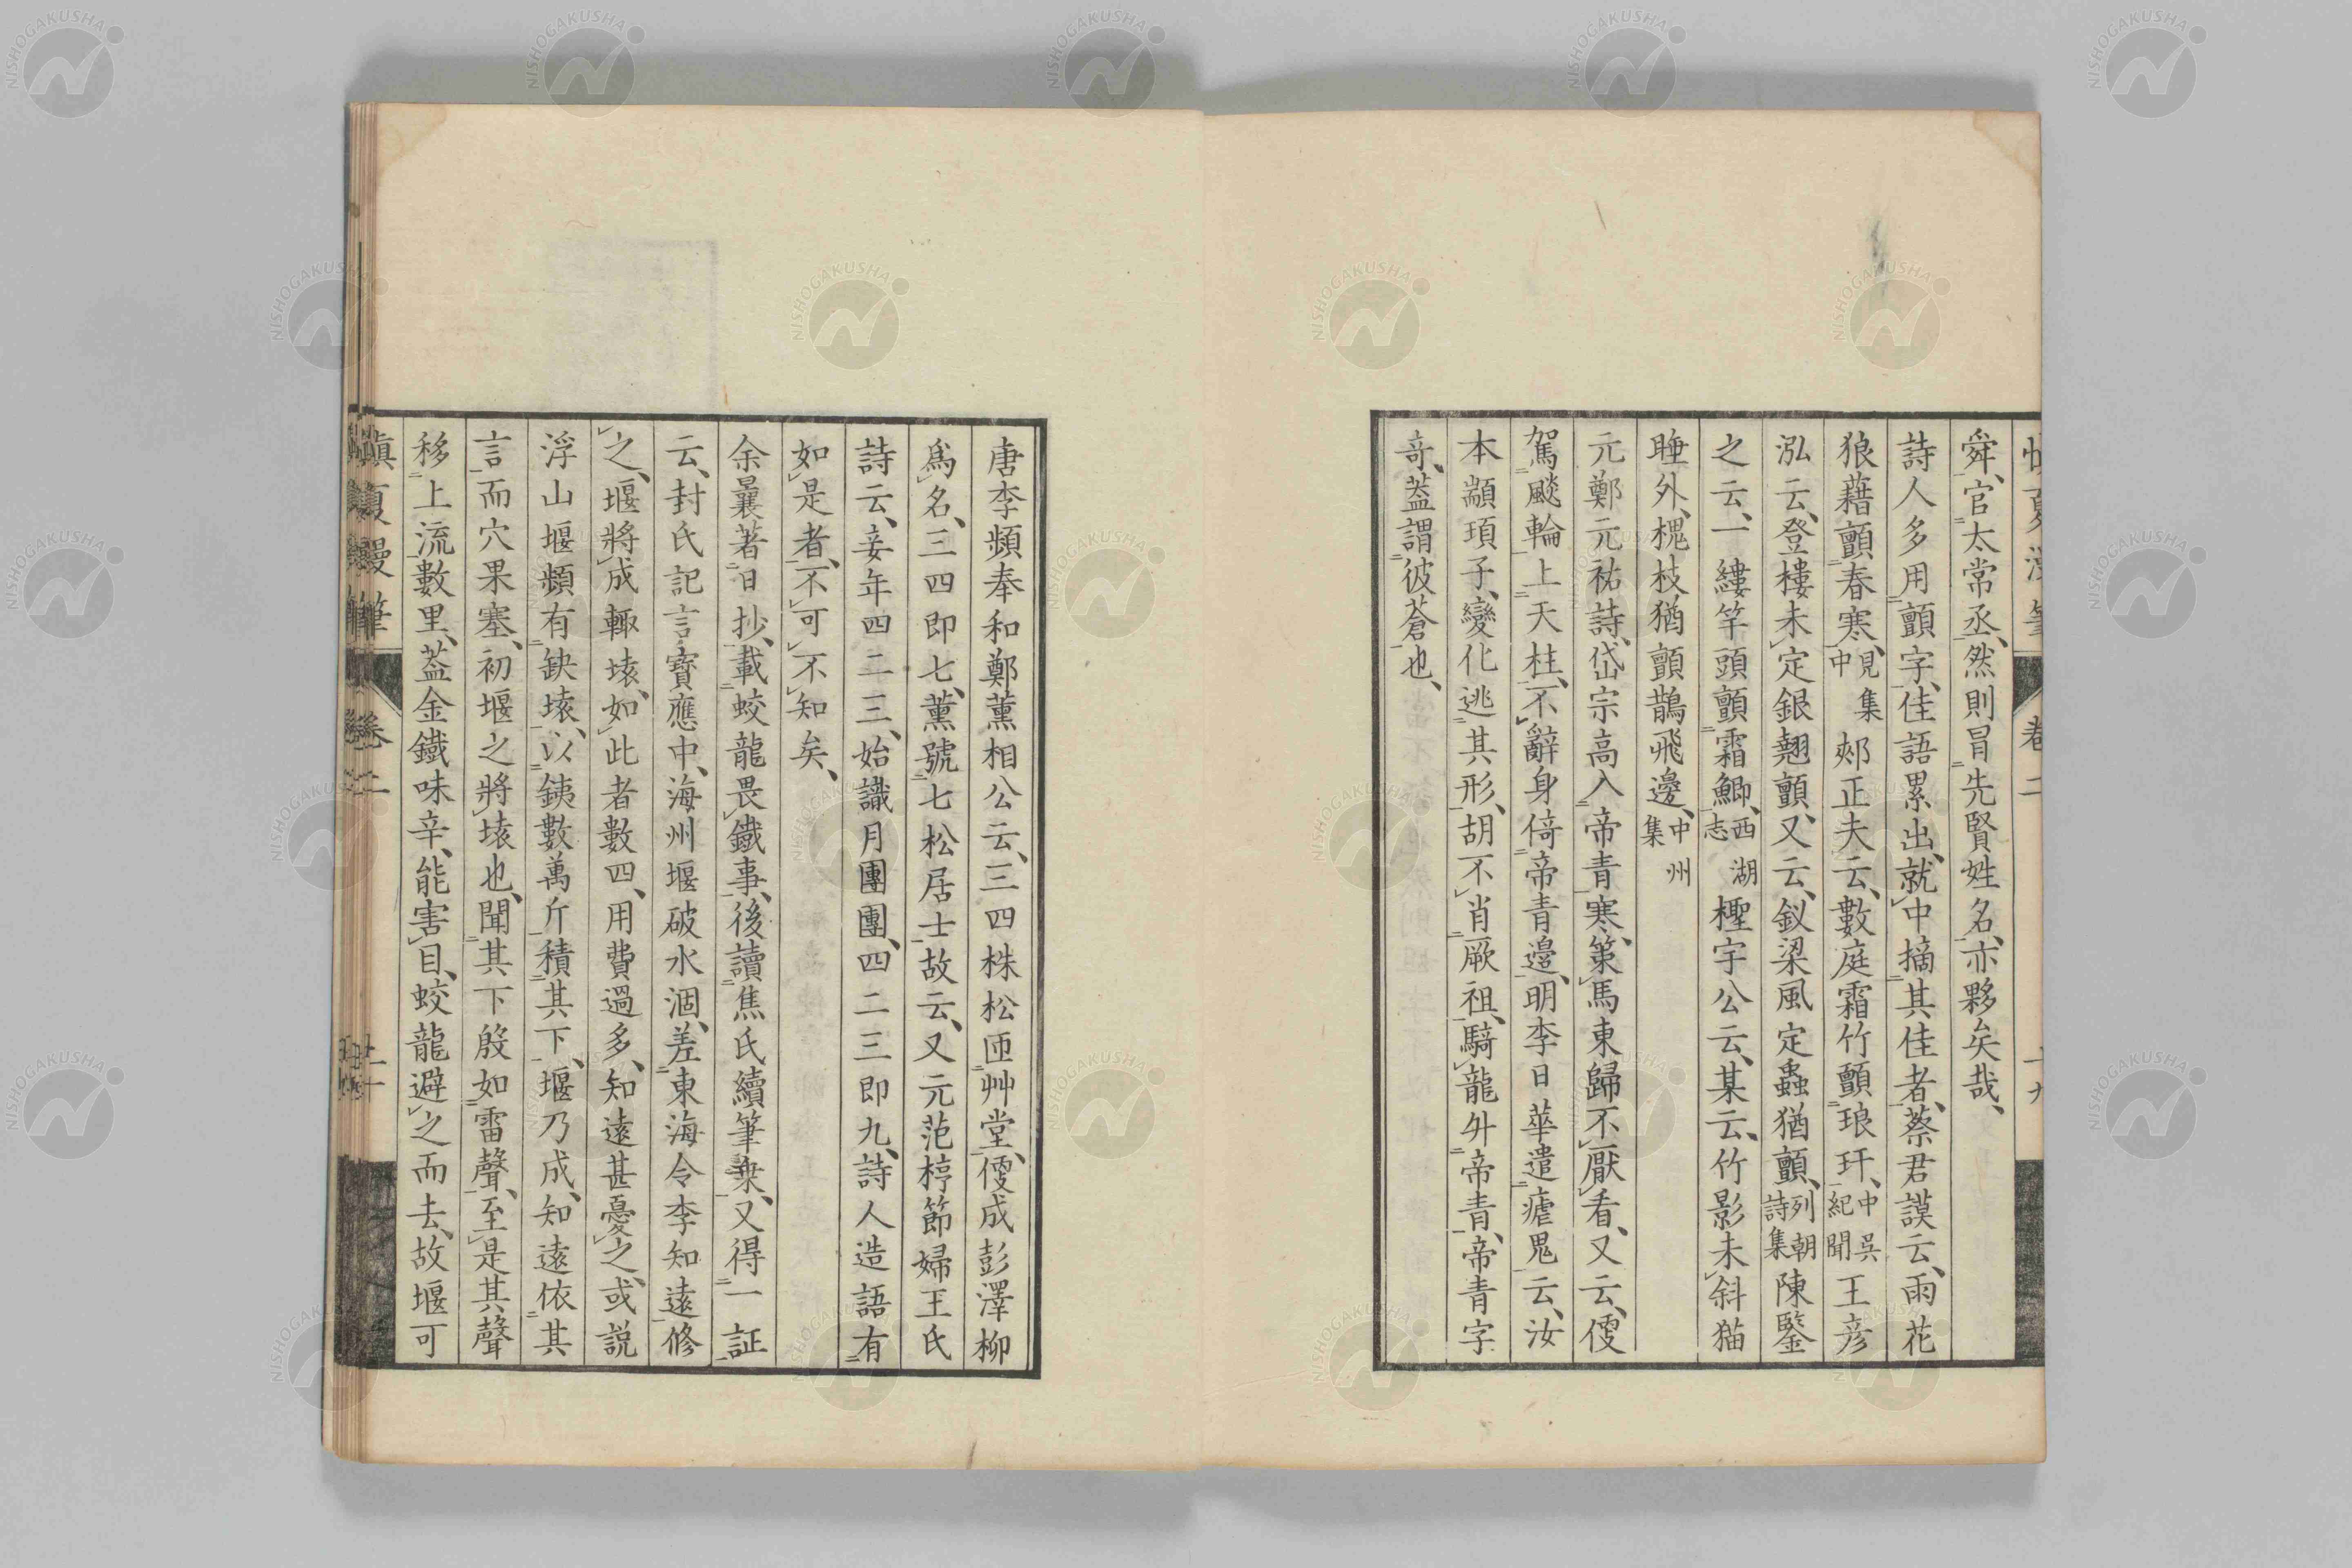 舜、官太常丞、然則冒先賢姓名、亦夥矣哉、
詩人多用顫字、佳語累出、就中摘其佳者、蔡君謨云、雨花
狼藉顫春寒、見集中郟正夫云、數庭霜竹顫琅玕、中吳紀聞王彥
泓云、登樓未定銀翹顫、又云、釵梁風定蟲猶顫、列朝詩集陳鑒
之云、一縷竿頭顫霜鯽、西湖志檉宇公云、某云、竹影未斜猫
睡外、槐枝猶顫鵲飛邊、中州集
元鄭元祐詩、岱宗高入帝青寒、策馬東歸不厭看、又云、便
駕飈輪上天柱、不辭身倚帝青邊、明李日華遣瘧鬼云、汝
本顓頊子、變化逃其形、胡不肖厥祖、騎龍外帝青、帝青字
奇、葢謂彼蒼也、
唐李頻奉和鄭薰相公云、三四株松匝艸堂、便成彭澤柳
爲名、三四即七、薰號七松居士故云、又元范梈節婦王氏
詩云、妾年四二三、始識月團團、四二三即九、詩人造語有
如是者、不可不知矣、
余曩著日抄、載蛟龍畏鐵事、後讀焦氏續筆乗、又得一証
云、封氏記言寶應中、海州堰破水涸、差東海令李知遠修
之、堰將成輙壊、如此者數四、用費過多、知遠甚憂之、或説
浮山堰頻有缺壊、以銕數萬斤積其下、堰乃成、知遠依其
言、而穴果塞、初堰之將壊也、聞其下殷如雷聲、至是其聲
移上流數里、葢金鐵味辛、能害目、蛟龍避之而去、故堰可
卷二